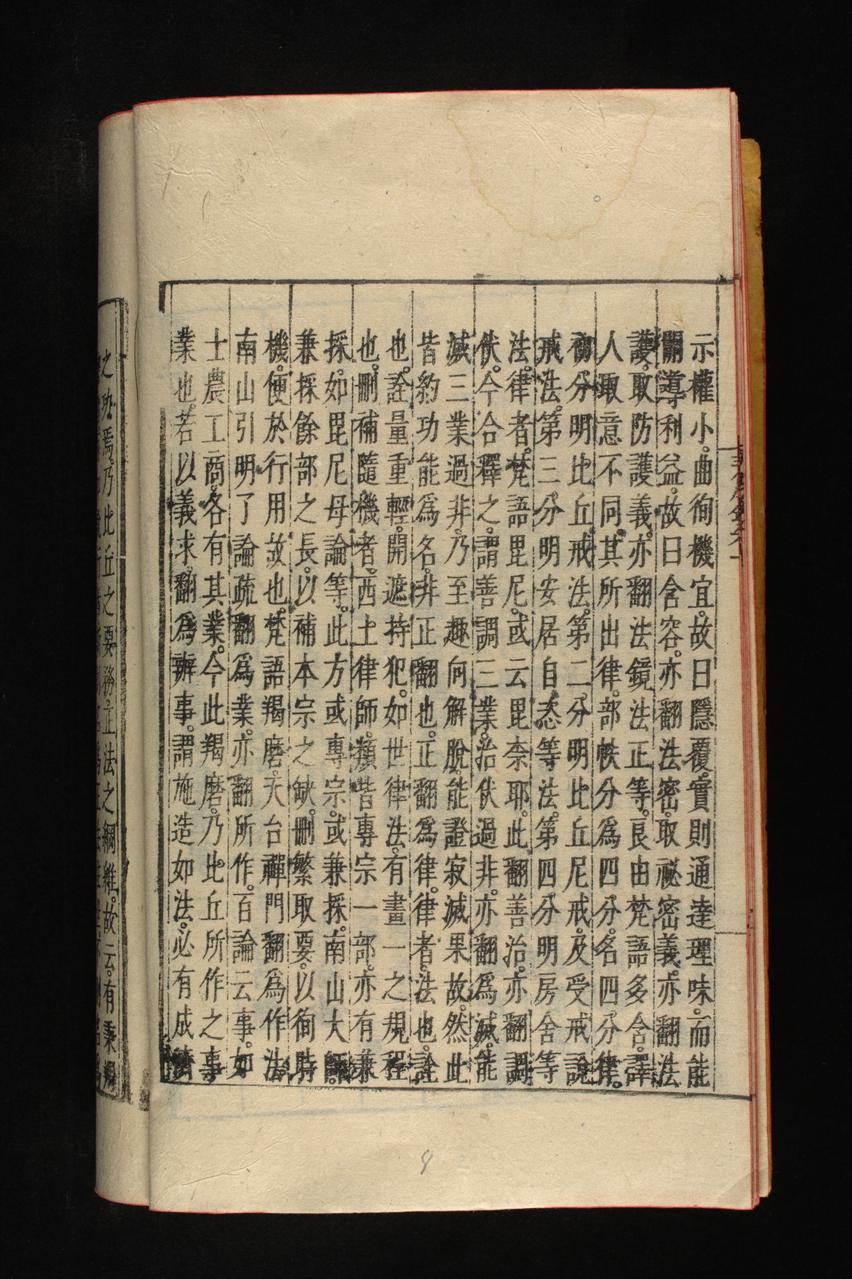 示權小。曲徇機宜。故曰隱覆。實則通達理味。而能
開導利益。故曰含容。亦翻法密。取祕密義。亦翻法
護。取防護義。亦翻法鏡法正等。良由梵語多含。譯
人取意不同。其所出律。部帙分為四分。名四分律。
初分明比丘戒法。第二分明比丘尼戒。及受戒說
戒法。第三分明安居自恣等法。第四分明房舍等
法。律者。梵語毘尼。或云毘奈耶。此翻善治。亦翻調
伏。今合釋之。謂善調三業。治伏過非。亦翻為滅。能
滅三業過非。乃至趣向解脫。能證寂滅果故。然此
皆約功能為名。非正翻也。正翻為律。律者。法也。詮
也。詮量重輕。開遮持犯。如世律法。有畫一之規程
也。刪補隨機者。西土律師。類皆專宗一部。亦有兼
採。如毘尼母論等。此方或專宗。或兼採。南山大師。
兼採餘部之長。以補本宗之缺。刪繁取要。以徇時
機。便於行用故也。梵語羯磨。天台禪門翻為作法。
南山引明了論疏。翻為業。亦翻所作。百論云事。如
士農工商。各有其業。今此羯磨。乃比丘所作之事
業也。若以義求。翻為辦事。謂施造如法。必有成濟
之功焉。乃比丘之要務。立法之綱維。故云。有秉